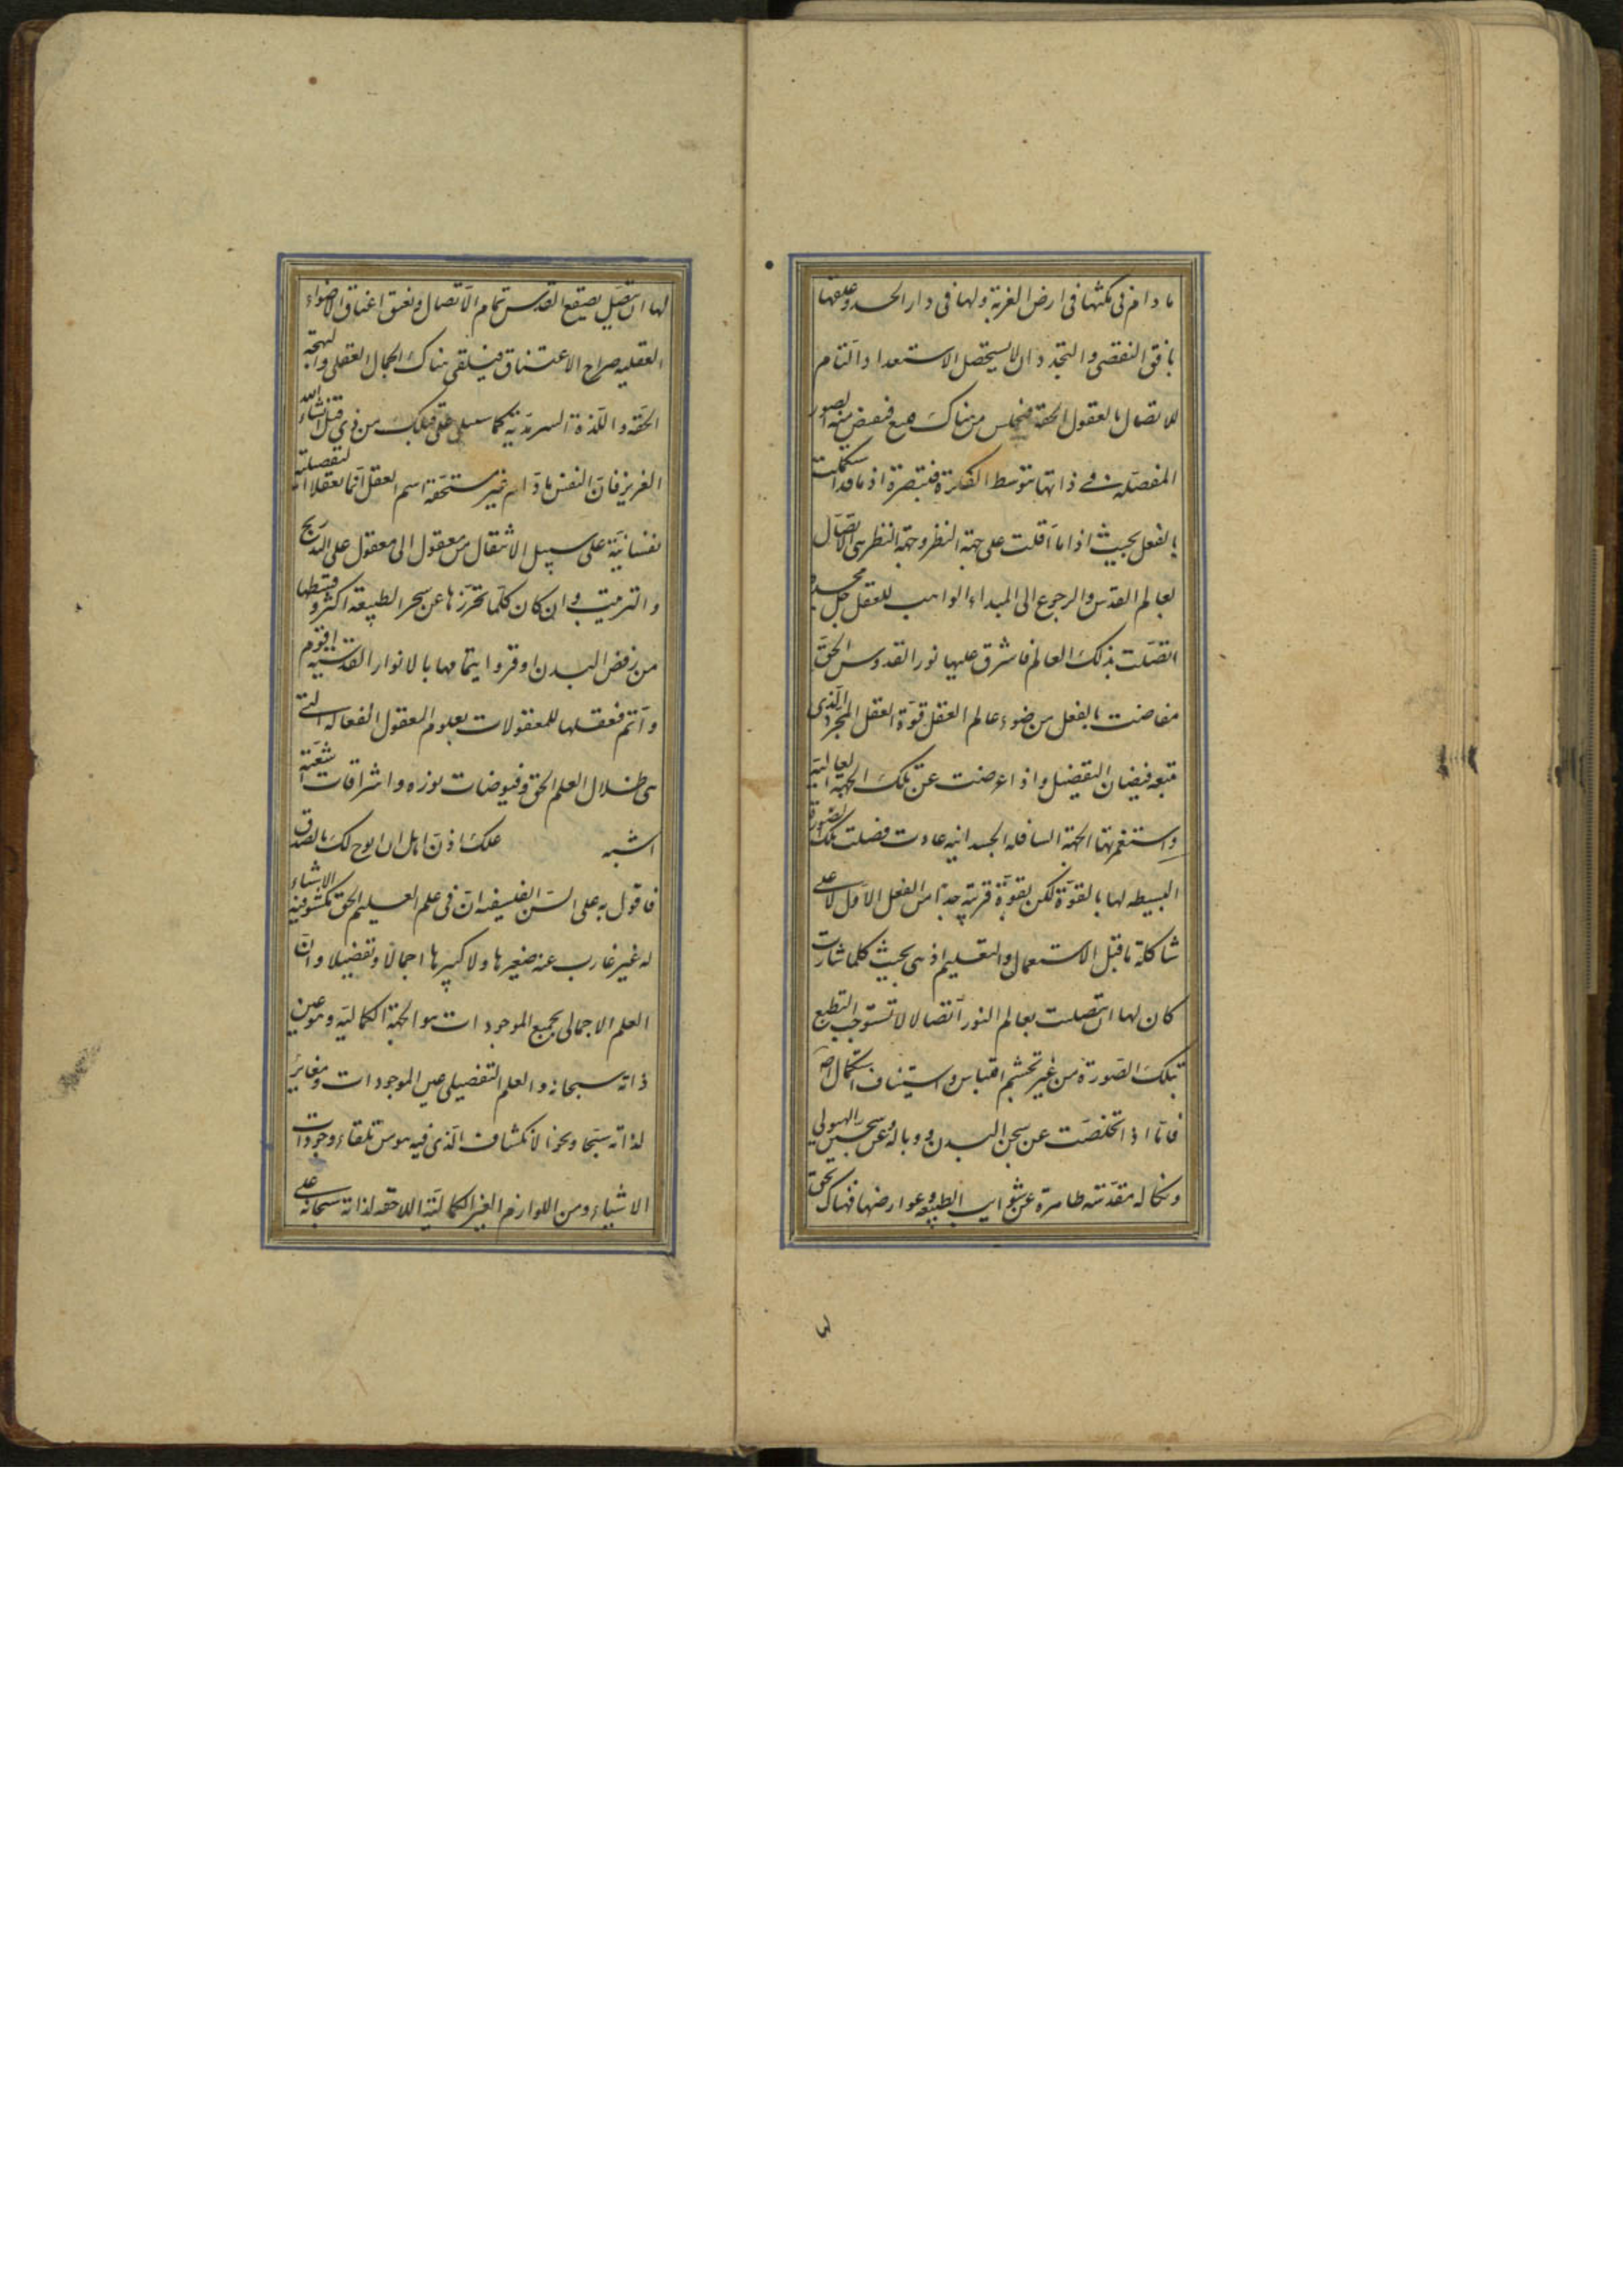 ما دام فى مكثها فى ارض الغربة ولها فى دار الجسد وعلقها
بافق النقص والتجدد ان لا يستحصل الاستعداد التام
للاتصال بالعقول الحقة من هناك فيفيض منه الصور
المفصّلة فى ذاتها بتوسط الفكرة فتبصرة اذ ما قد استكملت
بالفعل بحيث اذا ما اقبلت على جهة النظر وجهة النظر هى الاتّصال
لعالم القدس والرجوع الى المبداء الواهب للعقل جل مجده
اتصّلت بذلك العالم فاشرق عليها نور القدوس الحقّ
ففاضت بالفعل من ضوء عالم العقل قوّة العقل المجرّد الّذى
يتبعه فيضان التفصيل واذا اعرضت عن تلك الجهة العالية
واستغمرتها الجهة السافله الجسدانيه عادت فصلت تلك الصورة
البسيطه لها بالقوّة لكن بقوّة قريبة جدّا من الفعل الاوّل لا على
شاكلة ما قبل الاستعمال والتعليم اذ هى بحيث كلما شاءت
كان لها ان تتصلت بعالم النور اتصالا لا تستوجب التطبع
بتلك الصّورة من غير تجشم اقتباس واستيناف استكمال
فامّا اذا تخلصّت عن سجن البدن ووباله وعن سجيّن الهيولى
ونكاله مقدّسته طاهرة عن شوايب الطبيعه وعوارضها فهناك يحق
لها ان تتصّل بصقع القدس تمام الاتصال وتعنق اعناق الاضواء
العقليه صراح الاعتناق فيلقى هناك الجمال العقلى والبهجة
الحقّه واللّذة السرمديّه كما سيتلى على قلبك من ذى قبل انشاء الله
العزيز فانّ النفس ما دام غير مستحقة اسم العقل انّما تعقلاتها لتفصيلية
نفسانيّة على سبيل الانتقال من معقول الى معقول على التدريج
والترتيب وان كان كلّما تحرّزها عن سحر الطبيعة اكثر وقسطها
من رفض البدن اوفر وايتمامها بالانوار القدسيّه اقوم
واتم فتعقلها للمعقولات بعلوم العقول الفعاله التى
هى ظلال العلم الحق وفيوضات نوره واشراقات اشعّته
اشبه علك اذن اهل ان ابوح لك بالصدق
فاقول به على السن الفليسفه ان فى علم العليم الحق تكشوفيه الاشياء
له غير عازب عنه صغيرها ولا كبيرها اجمالا وتفصيلا وانّ
العلم الاجمالى بجميع الموجودات هو الجهة الكماليّه وهو عين
ذاته سبحانه والعلم التفصيلى عين الموجودات ومغاير
لذاته سبحا ونحو الانكشاف الّذى فيه هو من تلقاء وجودات
الاشياء ومن اللوازم الغير الكماليّة اللاحقه لذاته سبحانه على